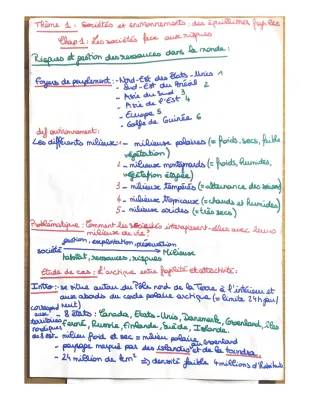 Thème 1 : Sociétés et environnements : des équilibres fragiles
Chap 1 : Les sociétés face aux risques
Risques et gestion des ressources dans le monde :
Foyers de peuplement : - Nord-Est des États-Unis 1
- Sud-Est du Brésil 2
- Asie du Sud 3
- Asie de l'Est 4
- Europe 5
- Golfe de Guinée 6
def environnement :
Les différents milieux : 1 - milieux polaires (= froids, secs, faible
végétation)
2 - milieux montagnards (= froids, humides,
végétation étagée)
3 - milieux tempérés (= alternance des saisons)
4 - milieux tropicaux (= chauds et humides)
5 - milieux arides (= très secs)
Problématique : Comment les sociétés interagissent-elles avec leurs
milieux de vie ?
gestion, exploitation, préservation
société Milieux
habitat, ressources, risques
Étude de cas : L'arctique entre fragilité et attractivité :
Intro : se situe autour du Pôle nord de la Terre à l'intérieur et
aux abords du cercle polaire arctique (= limite 24h jour/
correspond nuit)
aux - 8 états : Canada, États-Unis, Danemark, Groenland, îles
territoires Feroé, Russie, Finlande, Suède, Islande.
nordiques
- milieu froid et sec = milieu polaire, groenland
- paysage marqué par des islandsis et de la toundra.
- 24 million de km² => densité faible 4 millions d'habitants